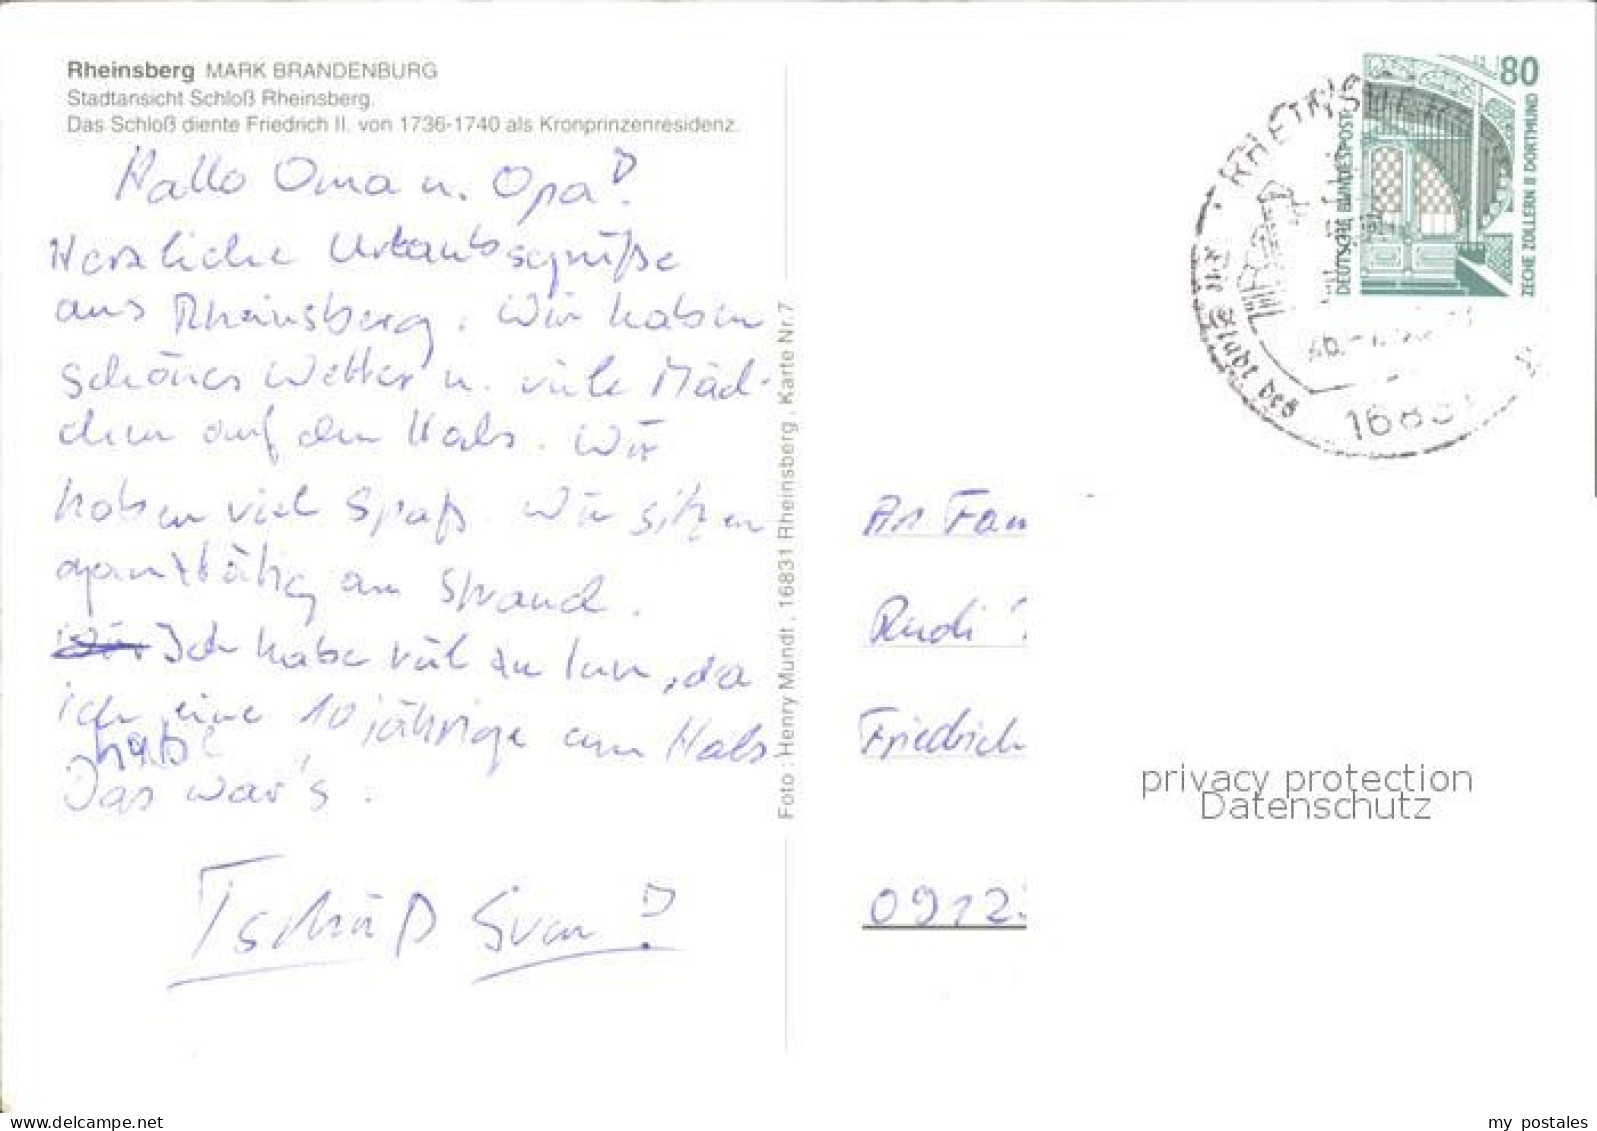 Rheinsberg MARK BRANDENBURG
Stadtansicht Schloß Rheinsberg.
Das Schloß diente Friedrich II. von 1736-1740 als Kronprinzenresidenz.
Hallo Oma u. Opa!
Herzliche Urlaubsgrüße
aus Rheinsberg. Wir haben
schönes Wetter u. viele Mäd-
chen auf den Hals. Wir
haben viel Spaß. Wir sitzen
ganztätig am Strand.
Wir Ich habe viel zu tun, da
ich eine 10 jährige am Hals
habe
Das war's.
Tschüß Sven!
Foto: Henry Mundt, 16831 Rheinsberg, Karte Nr.7
80
DEUTSCHE BUNDESPOST
ZECHE ZOLLERN II DORTMUND
An Fam
Rudi
Friedrich
0912
privacy protection
Datenschutz
hapeha.de
my postales